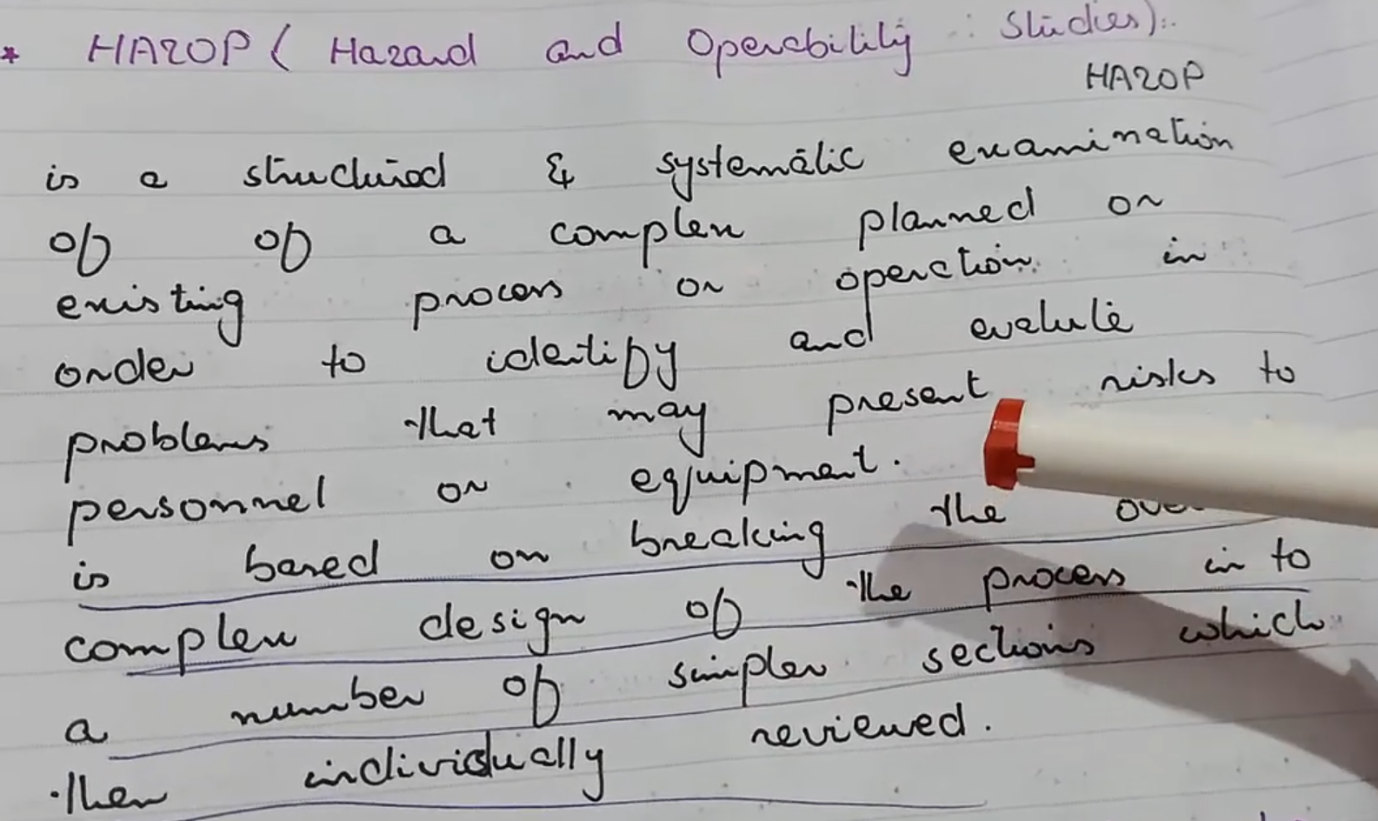 * HAZOP ( Hazard and Operability Studies):
HAZOP
is a structured & systematic examination
of of a complex planned or
existing process or operation in
order to identify and evalute
problems that may present risks to
personnel or equipment.
is based on breaking the
complex design of the process in to
a number of simpler sections which
then individually reviewed.